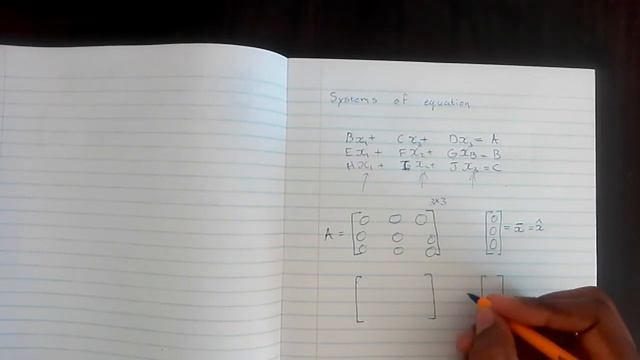 Systems of equation
Bx₁ + Cx₂ + Dx₃ = A
Ex₁ + Fx₂ + Gx₃ = B
Hx₁ + Ix₂ + Jx₃ = C
3x3
A = [0 0 0 [0] = x̄ = x̂
0 0 0 0
0 0 0] 0]